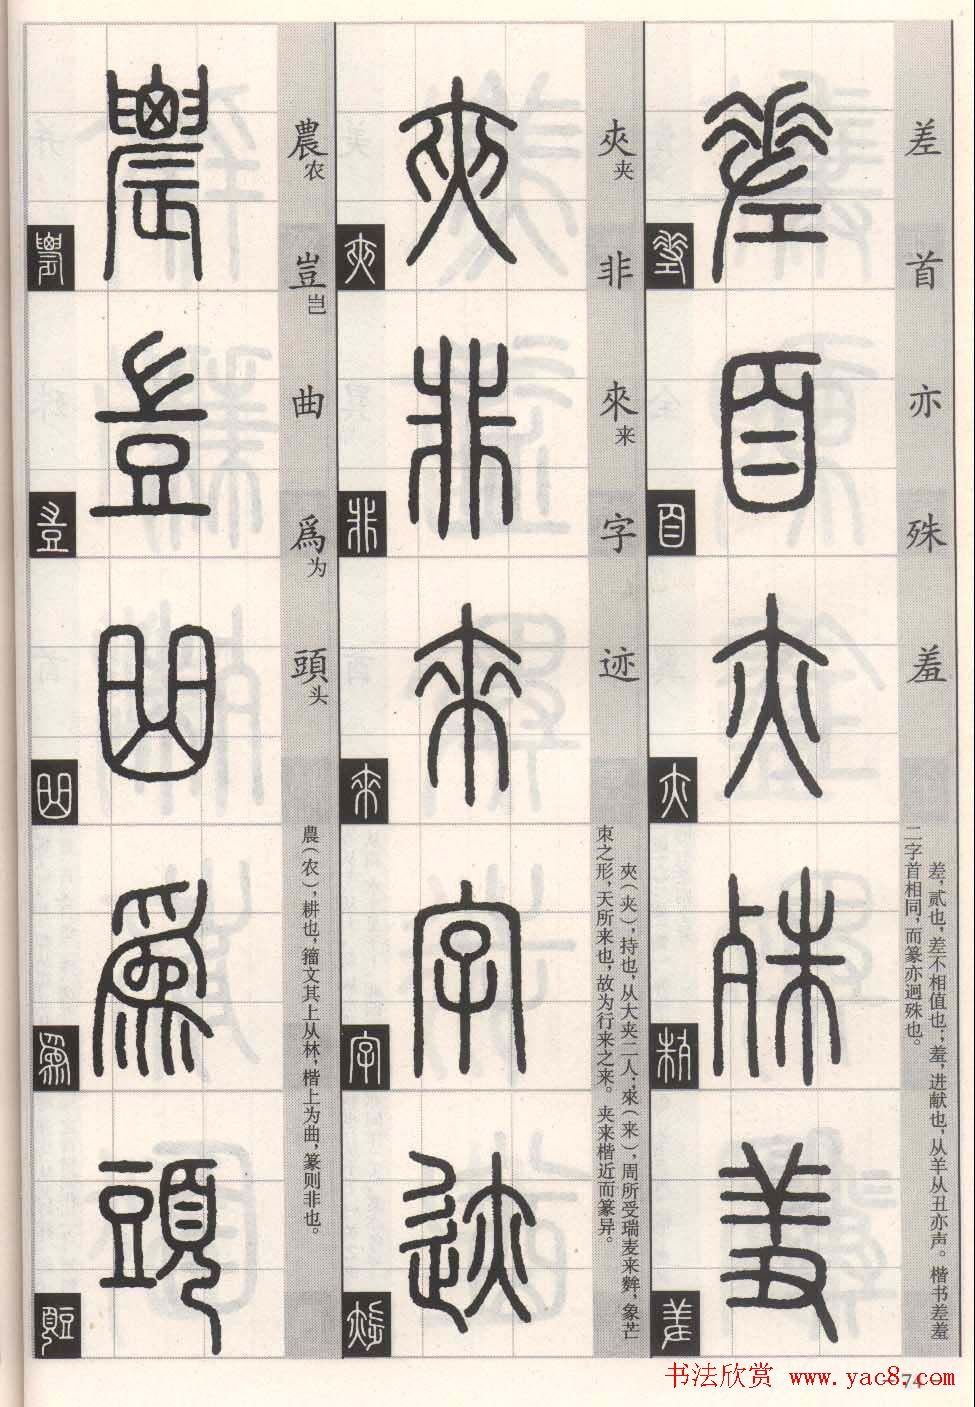 差首亦殊羞
差，貳也，差不相值也；羞，进献也，从羊从丑亦声。楷书差羞
二字首相同，而篆亦迥殊也。
夾夹非來来字迹
夾（夹），持也，从大夹二人；來（来），周所受瑞麦来麰，象芒
朿之形，天所来也，故为行来之来。夹来楷近而篆异。
農农豈岂曲爲为頭头
農（农），耕也，籀文其上从林，楷上为曲，篆则非也。
书法欣赏 www.yac8.com
74